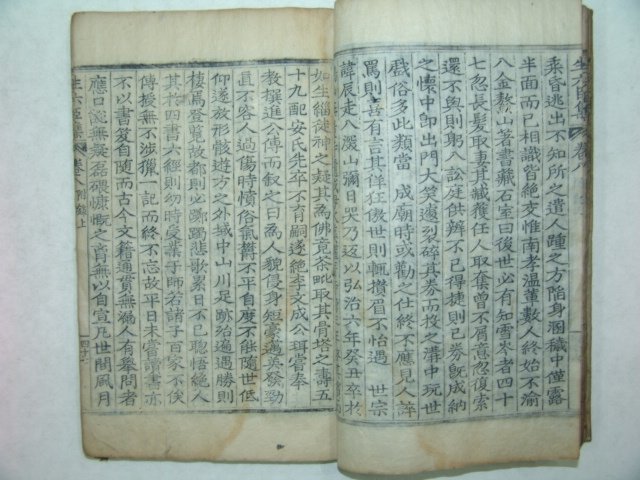 生六臣集 卷
乘昏逃出不知所之遺人踵之方陷身溷穴中僅露
半面而已相識皆絶交惟南孝溫輩數人終始不渝
入金鰲山著書藏石室曰後世必有知雪岑者四十
七忽長髮取妻其臧獲任人取奪曾不屑意忽復索
還不與則躬入訟庭供辨不已得捷則已券旣成納
之懷中卽出門大笑遽裂碎其券而投之溝中玩世
戲俗多此類當 成廟時或勸之仕終不應見人誶
罵則喜有言其佯狂傲世則輒攢眉不怡遇 世宗
諱辰走入深山彌日哭乃返以弘治六年癸丑卒於
如生緇徒神之疑其爲佛竟茶毗取其骨塔之壽五
十九配安氏先卒不育嗣遂絶李文成公珥嘗奉
敎撰進公傳而叙之曰爲人貌侵身短豪邁英發勁
直不容人過傷時憤俗氣欝不平不能隨世低
仰遂放形骸遊方之外域中山川足跡殆遍遇勝則
棲焉登覽故都則必躑躅悲歌累日不已聰悟絶人
其於四書六經則幼時受業于師若諸子百家不俟
傳授無不涉獵一記而終不忘故平日未嘗讀書亦
不以書笈自隨而古今文籍通貫無漏人有舉問者
應口說無疑磊磈慷慨之胷無以自宣凡世間風月
生六臣集 卷二 附錄上